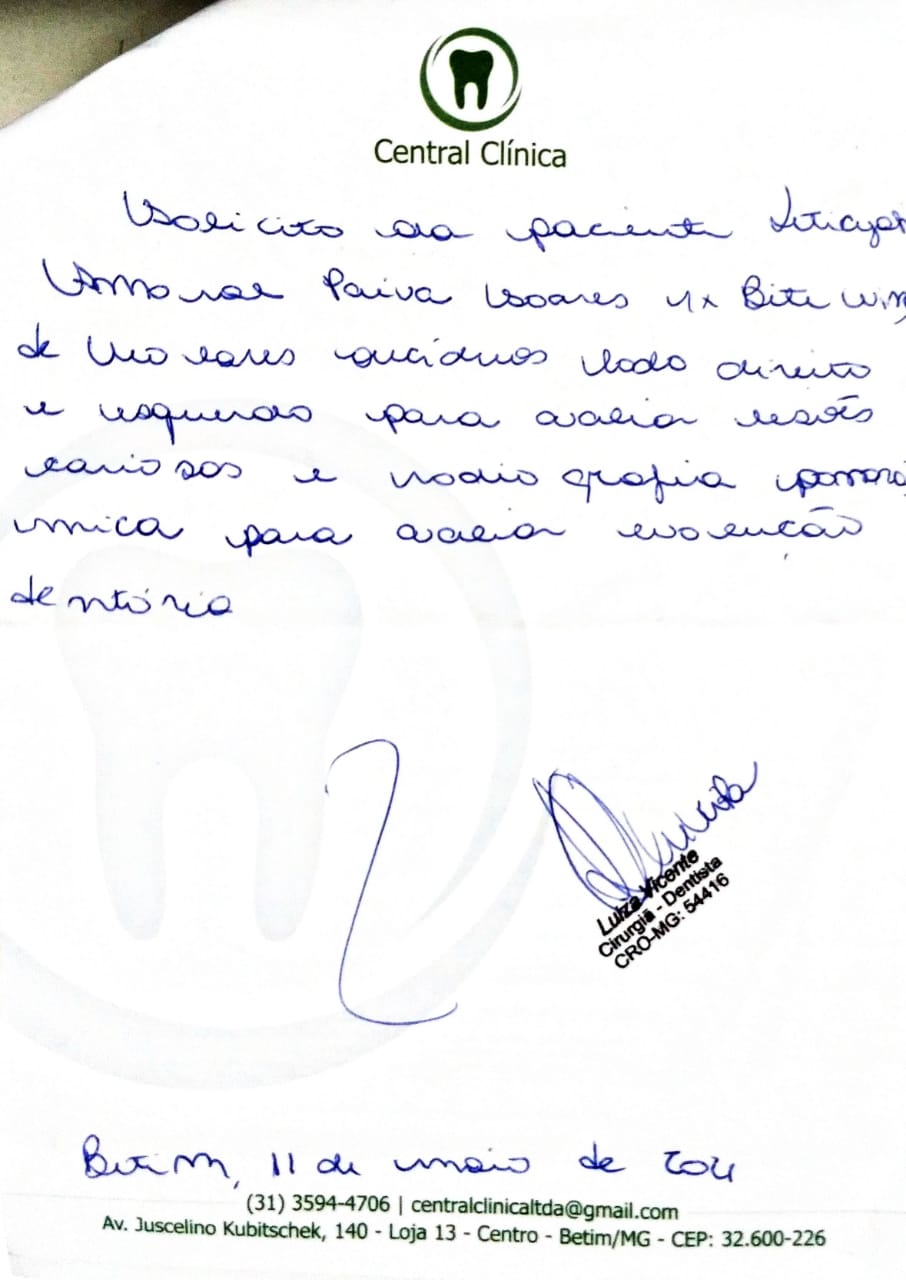 Central Clínica
Solicito da paciente
Amaral Paiva Soares 1x Bite wing
de molares decíduos lado direito
e esquerdo para avaliar lesões
cariosas e radiografia panorâ
mica para avaliar evolução
dentária
Luiza Vicente
Cirurgiã - Dentista
CRO-MG: 54416
Betim, 11 de maio de 2021
(31) 3594-4706 | centralclinicaltda@gmail.com
Av. Juscelino Kubitschek, 140 - Loja 13 - Centro - Betim/MG - CEP: 32.600-226